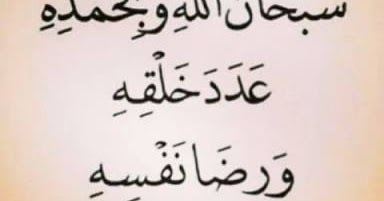 سبحان اللهِ وبِحمدِهِ
عَدَدَ خَلْقِهِ
وَرِضَا نَفْسِهِ